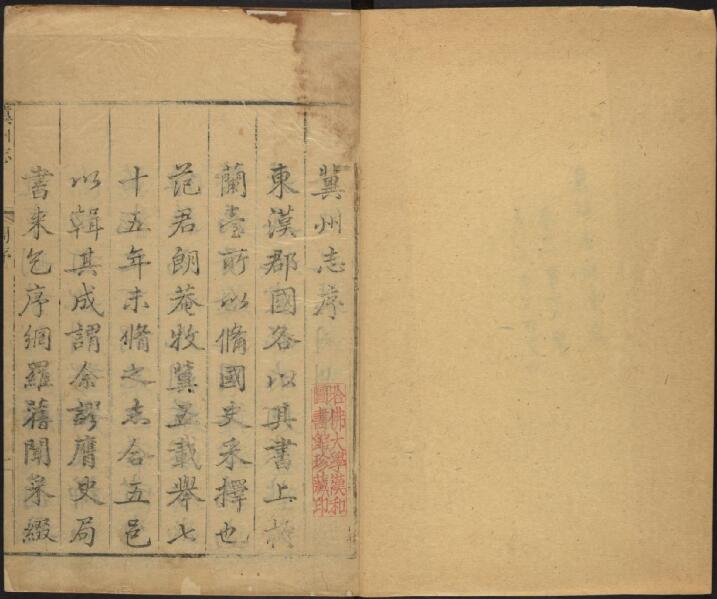 冀州志序
東漢郡國各以其書上於
蘭臺所以備國史采擇也
范君朗菴牧冀五載舉七
十五年未脩之志合五邑
以輯其成謂余謬膺史局
書来乞序網羅舊聞采綴
哈佛大學漢和
圖書館珍藏印
冀州志